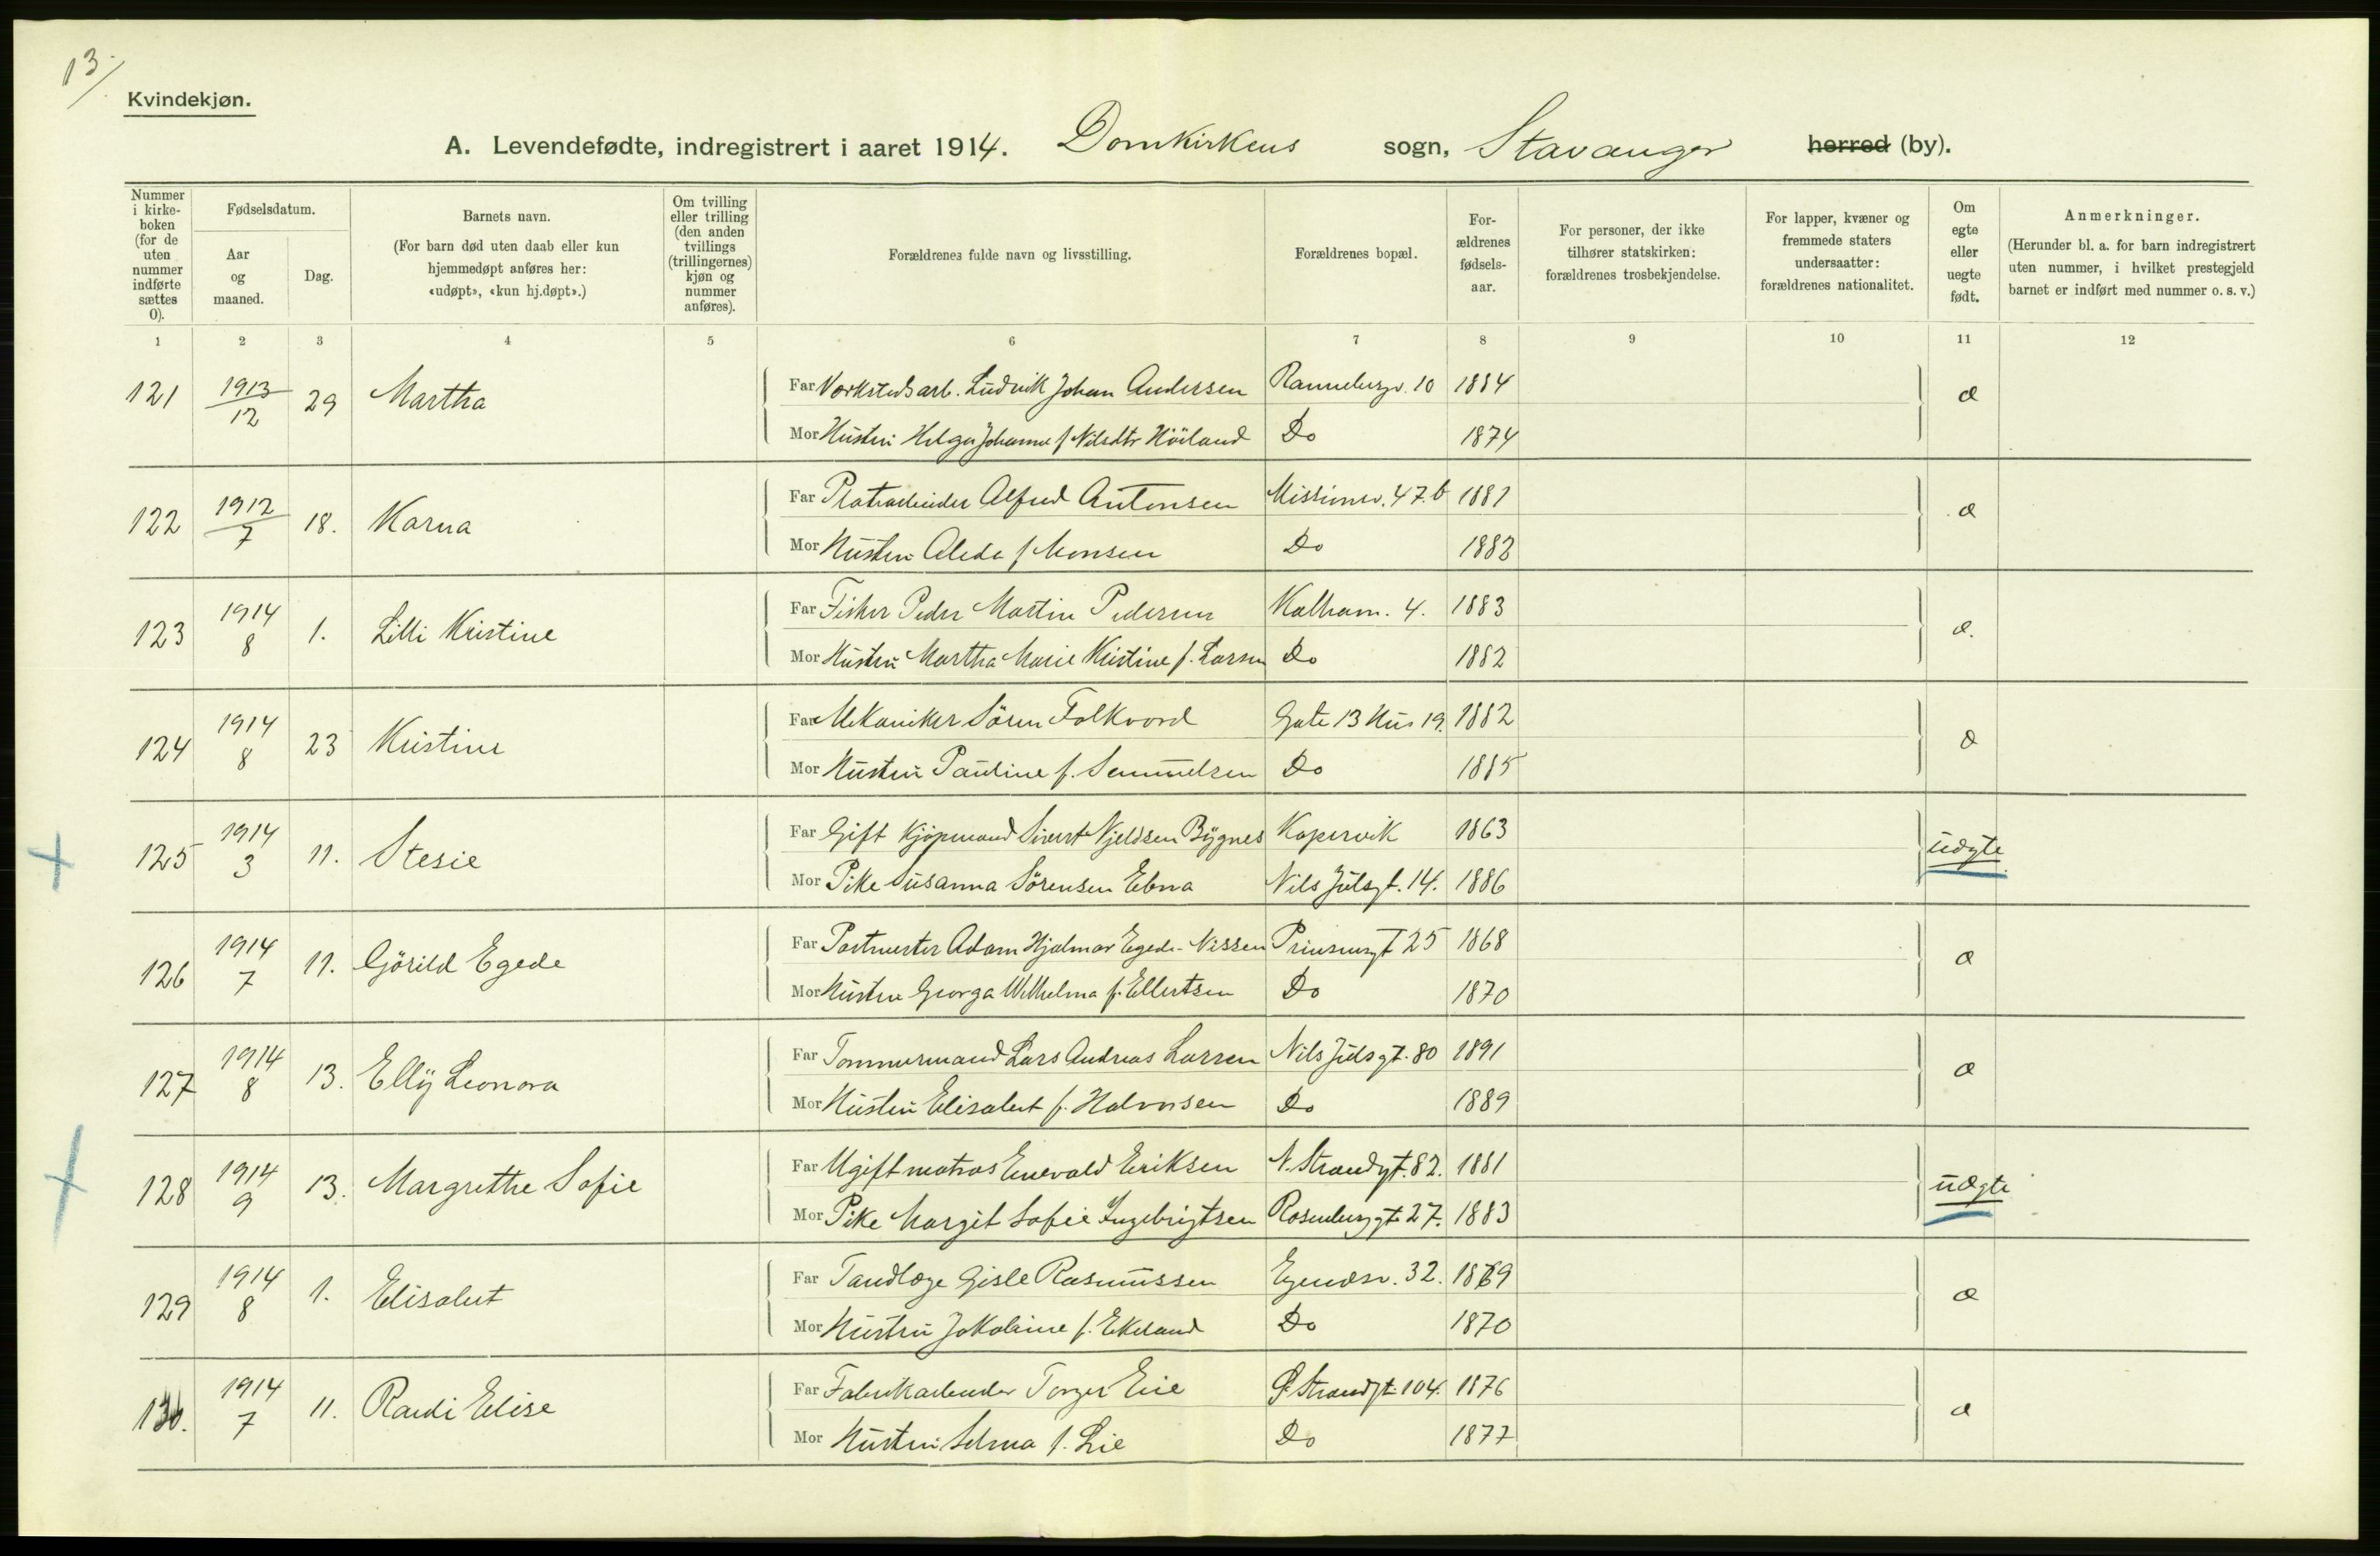 13.
Kvindekjøn.
A. Levendefødte, indregistrert i aaret 1914. Domkirkens sogn, Stavanger herred (by).
Nummer i kirke-boken (for de uten nummer indførte sættes 0).
Fødselsdatum.
Aar og maaned.
Dag.
Barnets navn.
(For barn død uten daab eller kun hjemmedøpt anføres her: «udøpt», «kun hj.døpt».)
Om tvilling eller trilling (den anden tvillings (trillingernes) kjøn og nummer anføres).
Forældrenes fulde navn og livsstilling.
Forældrenes bopæl.
For-ældrenes fødsels-aar.
For personer, der ikke tilhører statskirken: forældrenes trosbekjendelse.
For lapper, kvæner og fremmede staters undersaatter: forældrenes nationalitet.
Om egte eller uegte født.
Anmerkninger.
(Herunder bl. a. for barn indregistrert uten nummer, i hvilket prestegjeld barnet er indført med nummer o. s. v.)
1 2 3 4 5 6 7 8 9 10 11 12
121 1913/12 29 Martha Far Verkstedsarb. Ludvik Johan Andersen Rannebergv. 10 1884
Mor Hustru Helga Johanne f Nilsdtr Höiland Do 1874
122 1912/7 18. Karna Far Alfred Antonsen Missionsv. 47.b 1881
Mor Hustru Aleda f Monsen Do 1882
123 1914 8 1. Lilli Kristine Far Fisker Peder Martin Pedersen Kalham. 4. 1883
Mor Hustru Martha Marie Kristine f. Larsen Do 1882
124 1914 8 23 Kristine Far Mekaniker Sören Folkvord Gate 13 Hus 19. 1882
Mor Hustru Pauline f. Samuelsen Do 1885
125 1914 3 11. Stesie Far Gift Kjöpmand Sivert Kjeldsen Bygnes Kopervik 1863 uægte
Mor Pike Susanna Sörensen Ebna Nils Julsgt. 14. 1886
126 1914 7 11. Görild Egede Far Postmester Adam Hjalmar Egede-Nissen Prinsensgt 25 1868
Mor Hustru Georga Wilhelma f. Ellertsen Do 1870
127 1914 8 13. Elly Leonora Far Tömmermand Lars Andreas Larsen Nils Julsgt. 80 1891
Mor Hustru Elisabet f. Halvorsen Do 1889
128 1914 9 13. Margrethe Sofie Far Ugift matros Enevald Eriksen N. Strandgt. 82. 1881 uægte
Mor Pike Margit Sofie Ingebrigtsen Rosenberggt 27. 1883
129 1914 8 1. Elisabet Far Tandlæge Gisle Rasmussen Egenesv. 32. 1869
Mor Hustru Jakobine f. Ekeland Do 1870
130. 1914 7 11. Randi Elise Far Fabrikarbeider Torger Eie Ø. Strandgt. 104. 1876
Mor Hustru Selma f. Lie Do 1877